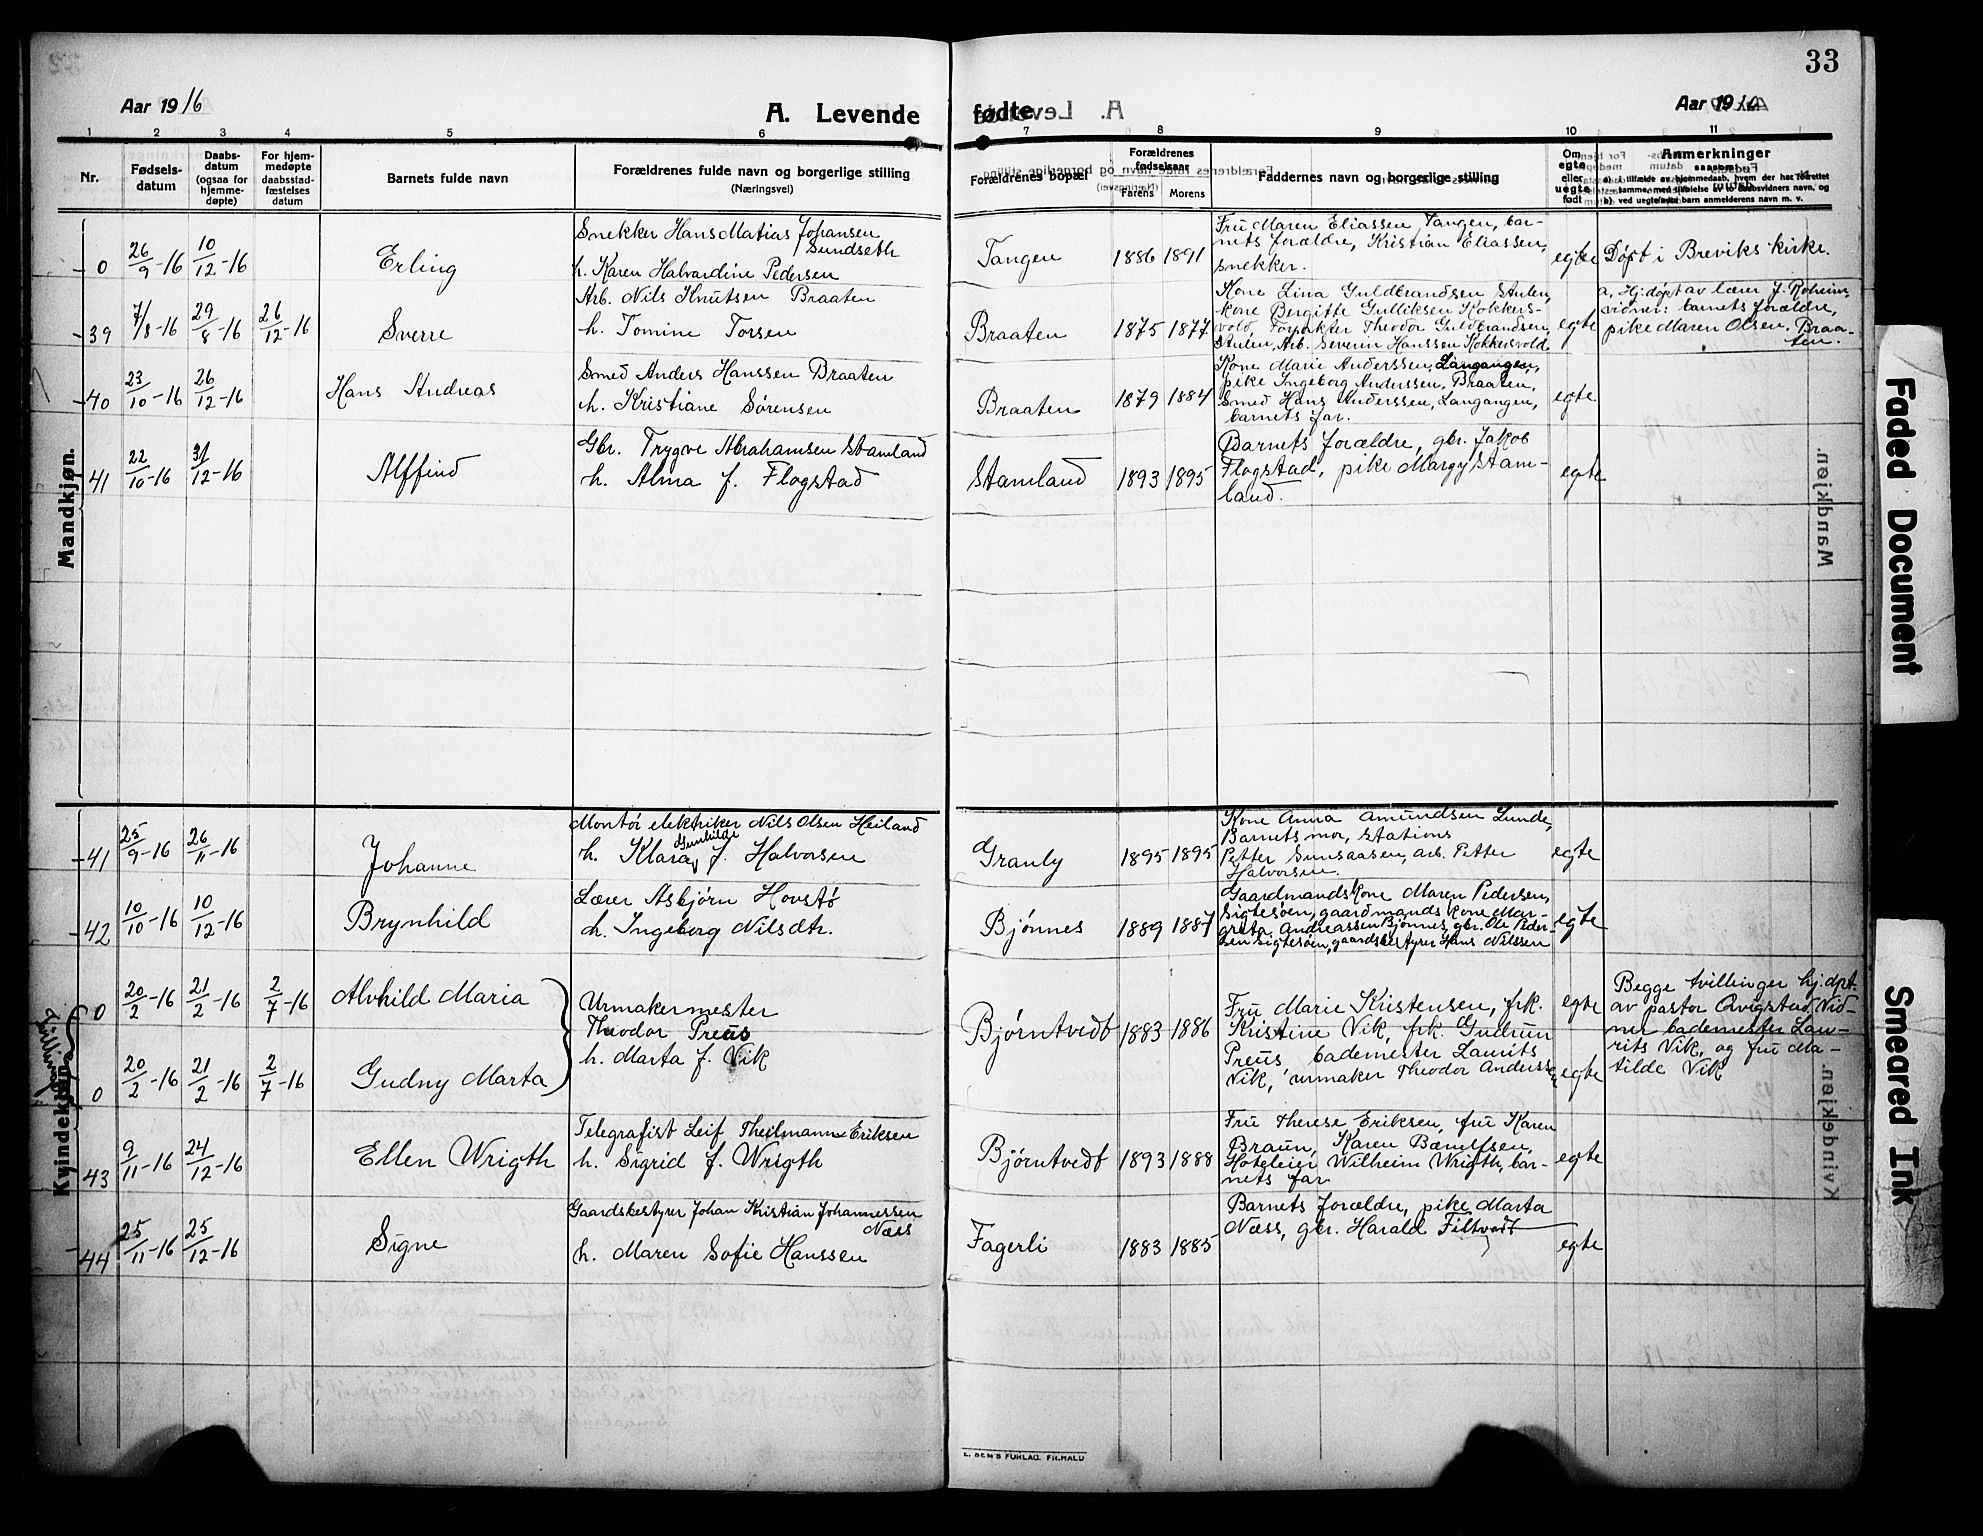 33
Aar 1916
A. Levende fødte
Aar 1916
1 2 3 4 5 6 7 8 9 10 11
Nr.
Fødsels-
datum
Daabs-
datum
(ogsaa for
hjemme-
døpte)
For hjem-
medøpte
daabsstad-
fæstelses
datum
Barnets fulde navn
Forældrenes fulde navn og borgerlige stilling
(Næringsvei)
Forældrenes bopæl
Forældrenes
fødselsaar
Farens Morens
Faddernes navn og borgerlige stilling
Om
egte
eller
uegte
født
Anmerkninger
saasom:
a) i tilfælde av hjemmedaab, hvem der har forrettet
samme, med tilføielse av to daabsvidners navn, og
b) ved uegte født barn anmelderens navn m. v.
Mandkjøn.
0 26/9-16 10/12-16 Erling
Snekker Hans Matias Johansen
Sundseth
h. Karen Halvardine Pedersen
Tangen 1886 1891
Fru Maren Eliassen, Tangen, bar-
nets forældre, Kristian Eliassen,
snekker.
egte Døpt i Breviks kirke.
39 7/8-16 29/8-16 26/12-16 Sverre
Arb. Nils Knutsen Braaten
h. Tomine Torsen
Braaten 1875 1877
Kone Lina Guldbrandsen Stulen,
kone Bergitte Gulliksen Kokkers-
vold, Forpakter Theodor Guldbrandsen,
Stulen, Arb. Severin Hanssen Kokkersvold.
egte
a, Hj. døpt av lærer J. Roheim,
vidner: barnets forældre,
pike Maren Olsen, Braa-
ten.
40 23/10-16 26/12-16 Hans Andreas
Smed Anders Hanssen Braaten
h. Kristiane Sørensen
Braaten 1879 1884
Kone Marie Anderssen, Langangen,
pike Ingeborg Anderssen, Braaten,
Smed Hans Anderssen, Langangen,
barnets far.
egte
41 22/10-16 31/12-16 Alffind
Gbr. Trygve Abrahamsen Stamland
h. Alma f. Flogstad
Stamland 1893 1895
Barnets forældre, gbr. Jakob
Flogstad, pike Margy Stam-
land.
egte
Kvindekjøn.
41 25/9-16 26/11-16 Johanne
Montør elektriker Nils Olsen Heiland
Gunhilde
h. Klara f. Halvorsen
Granly 1895 1895
Kone Anna Amundsen Lunde,
Barnets mor, stations
Petter Sunsaasen, arb. Petter
Halvorsen.
egte
42 10/10-16 10/12-16 Brynhild
Lærer Asbjørn Hovstø
h. Ingeborg Nilsdtr.
Bjønnes 1889 1887
Gaardmandskone Maren Pedersen,
Sigtesøen, gaardmands kone Mar-
greta Andreassen Bjønnes, gbr. Ole Peder-
sen Sigtesøen, gaardsbestyrer Hans Nilssen
egte
Tvillinger
0 20/2-16 21/2-16 2/7-16 Alvhild Maria
0 20/2-16 21/2-16 2/7-16 Gudny Marta
Urmakermester
Theodor Preus
h. Marta f. Vik
Bjørntvedt 1883 1886
Fru Marie Kristensen, frk.
Kristine Vik, frk. Gudrun
Preus, bademester Laurits
Vik, urmaker Theodor Anderssen
egte
egte
Begge tvillinger hj.døpt.
av pastor Qvigstad, Vid-
ner bademester Lau-
rits Vik, og fru Ma-
tilde Vik
43 9/11-16 24/12-16 Ellen Wrigth
Telegrafist Leif Theilmann Eriksen
h. Sigrid f. Wrigth
Bjørntvedt 1893 1888
Fru Therese Eriksen, fru Karen
Braun, Karen Bærulfsen,
Hoteleier Wilhelm Wrigth, bar-
nets far
egte
44 25/11-16 25/12-16 Signe
Gaardsbestyrer Johan Kristian Johannessen
Næss
h. Maren Sofie Hanssen
Fagerli 1883 1885
Barnets forældre, pike Marta
Næss, gbr. Harald Filtvedt
egte
Faded Document
Smeared Ink